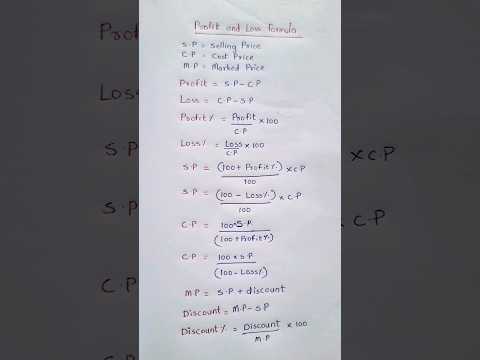 Profit and Loss Formula
S.P = Selling Price
C.P = Cost Price
M.P = Marked Price
Profit = S.P - C.P
Loss = C.P - S.P
Profit% = Profit/C.P × 100
Loss% = Loss/C.P × 100
S.P = (100 + Profit%)/100 × C.P
S.P = (100 - Loss%)/100 × C.P
C.P = 100×S.P/(100 + Profit%)
C.P = 100 × S.P/(100 - Loss%)
M.P = S.P + discount
Discount = M.P - S.P
Discount% = Discount/M.P × 100